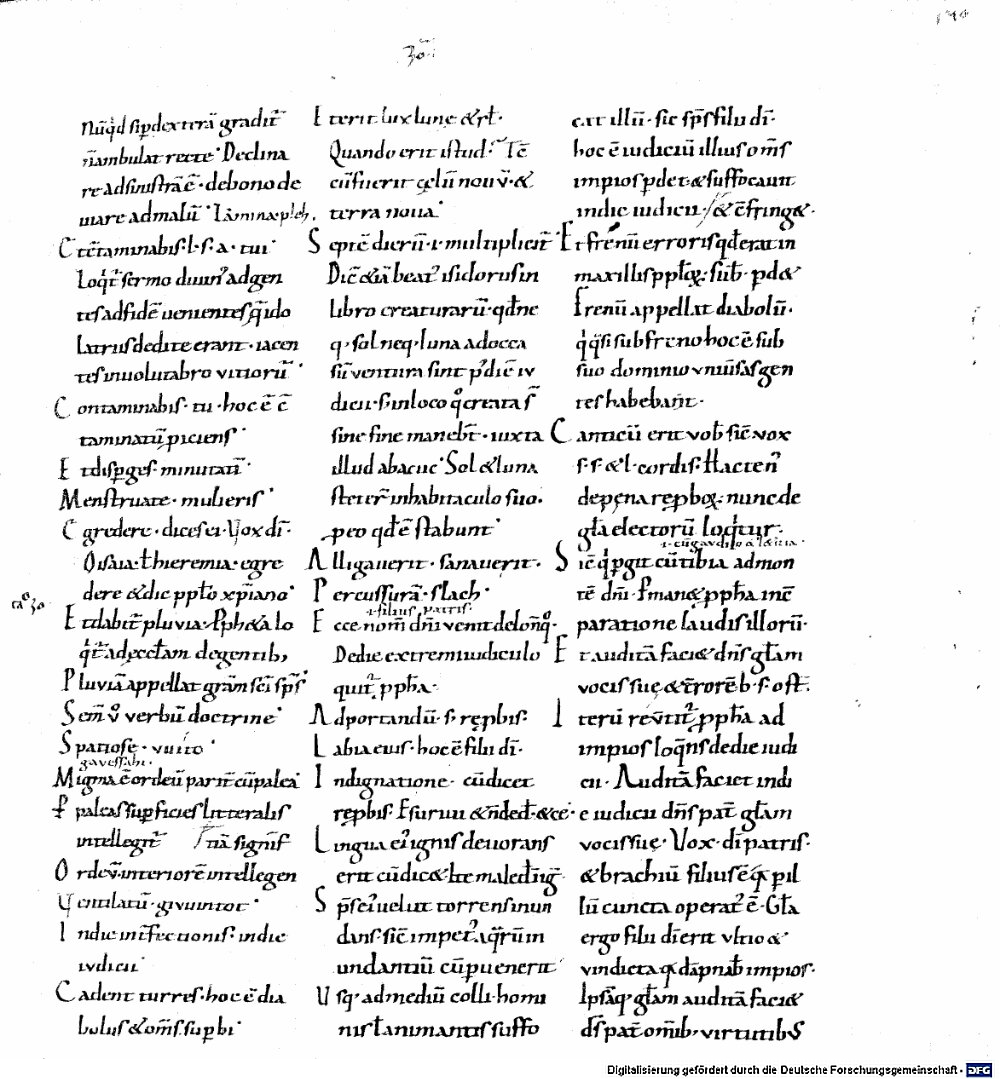 nūqd sip dexterā gradit᷑
n̄ambulat recte· Declina
re adsinistrā ē· debono de
uiare admalū· Lāmina pleh.
Cteraminabis·l·s·a·tui
loqt᷑ sermo diuin᷒ adgen
tes adfidē uenientes q̄ ido
latriis dedite erant· iacen
tes in uolutabro uitiorū·
Contaminabis· tu· hoc ē c̄
taminatū piciens·
Et dispges· minutatī·
Menstruate· mulieris·
Egredere· dices ei· Vox dī·
O isaia· t hieremia· egre
dere & dic pptō xpiano·
Et dabit᷑ pluvia· Pph&a lo
qt᷑ ad ęcctam degentib;
Pluviā appellat gr̄am sci sps·
Semī v̊ verbū doctrine·
Spatiose· vuito·
gavessahi·
Migma ē ordeū parit᷑ cū palea·
P paleas superficies litteralis
intellegit᷑ signif
Ordeū· interiorē intellegen
Ventilatū· givuintot·
In die intfectionis· in die
iudicii·
Cadent turres· hoc ē dia
bolus & om̄s supbi·
Et erit lux lunę & rt·
Quando erit istud· Tē
cū fuerit cęlū novū· &
terra noua·
Septē dierū· i· multiplicit᷑
Dic & iā beat᷒ isidorus in
libro creaturarū· qd ne
q· sol neq· luna ad occa
sū ventura sint p die iu
dicii· s; in loco q̊ creata s̄
sine fine maneb̄t· iuxta
illud abacuc· Sol & luna
stetert᷑ in habitaculo suo·
p eo qd ē stabunt·
Alligauerit· sanauerit·
Percussurā· slach·
i· filius patris·
Ecce nom̄ dn̄i venit de lonq̄·
De die extremi iudicii lo
quit᷑ ppha·
Ad portandū· s· repbis·
Labia eius· hoc ē filii dī·
Indignatione· cū dicet
repbis· Esurivi & n̄ dedt· & ce·
Lingua ei᷒ ignis devorans
erit cū dic& Ite maledig̅
Sps ei᷒ uelut torrens inun
dans· sic impet᷒ aq̄rū in
undantiū cū p uenerit
Usq· ad mediū colli· homi
nis t animantis suffo
cat illū· sic sps filii dī·
hoc ē iudiciū illius om̄s
impios pdet· & suffocauit
in die iudicii· & c̄fring&·
Et frenū erroris qd erat in
maxillis pptoꝝ· sub· pd&
Frenū appellat diabolū·
q qsi sub freno hoc ē sub
suo dominio universas gen
tes habebant·
Canticū erit vob sic vox
s· s· & l· cordis· Hacten᷒
de pena repboꝝ· nunc de
gta electorū loqtur·
i· cū gaudio & lętitia·
Sic q pgit cū tibia admon
tē dn̄i· P man& ppha inc̄
paratione laudis illorū·
Et auditā faci& dns gtam
vocis suę & t̄rorē b· s· ost·
Iterū rev̄tit᷑ ppha ad
impios loqns de die iudi
cii· Auditā faciet in di
e iudicii dns pat᷑ gtam
vocis suę· Vox· dī patris·
& brachiū filius ē q p il
lū cuncta operat᷑ ē· Gta
ergo filii dī erit vltio &
vindicta q dāpnab impios·
Ipsāq· gtam auditā faci&
ds pat᷑ omib; virtutibus
Digitalisierung gefördert durch die Deutsche Forschungsgemeinschaft - DFG